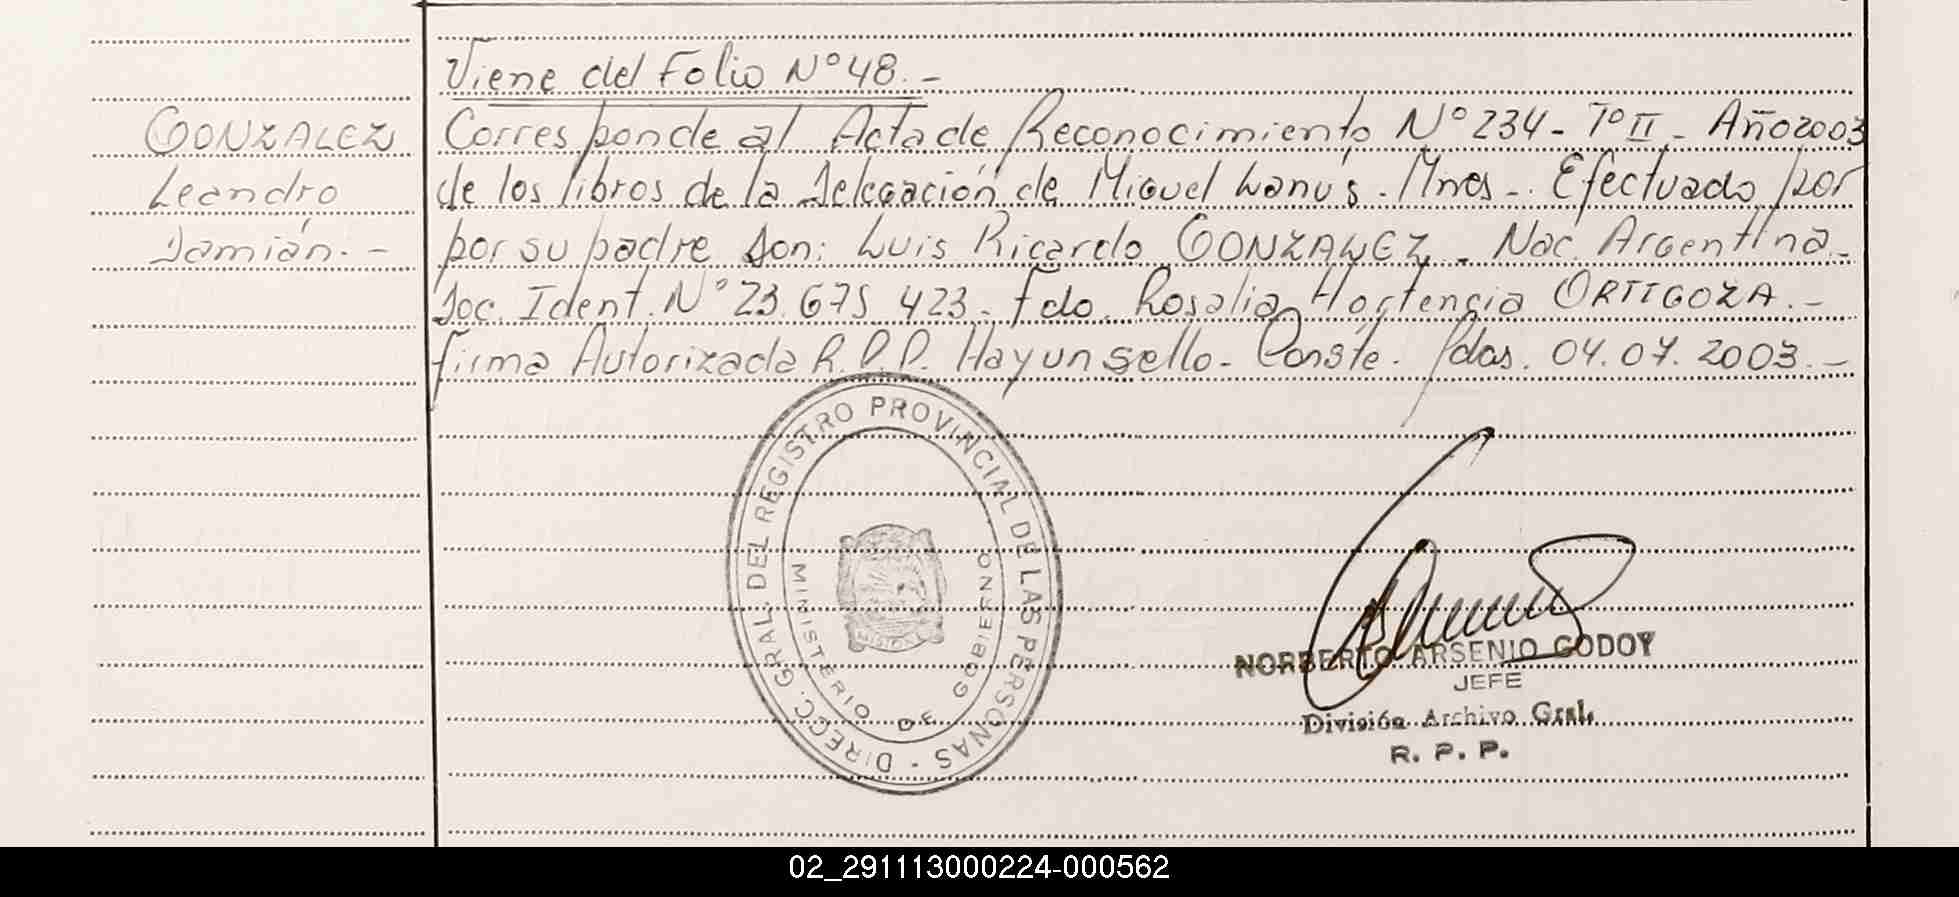 Viene del Folio Nº 48.-
GONZALEZ
Leandro
Damián.-
Corresponde al Acta de Reconocimiento Nº 234- Tº II - Año 2003
de los libros de la Delegación de Miguel Lanús. Mnes-. Efectuado por
por su padre Don: Luis Ricardo GONZALEZ - Nac. Argentina.-
Doc. Ident. Nº 23.675.423- Fdo. Rosalia Hortencia ORTIGOZA.-
firma Autorizada R.P.P. Hay un sello- Conste. Pdas. 04.07.2003.-
DIRECC. GRAL. DEL REGISTRO PROVINCIAL DE LAS PERSONAS -
MINISTERIO DE GOBIERNO
NORBERTO ARSENIO GODOY
JEFE
División Archivo Gral.
R. P. P.
02_291113000224-000562